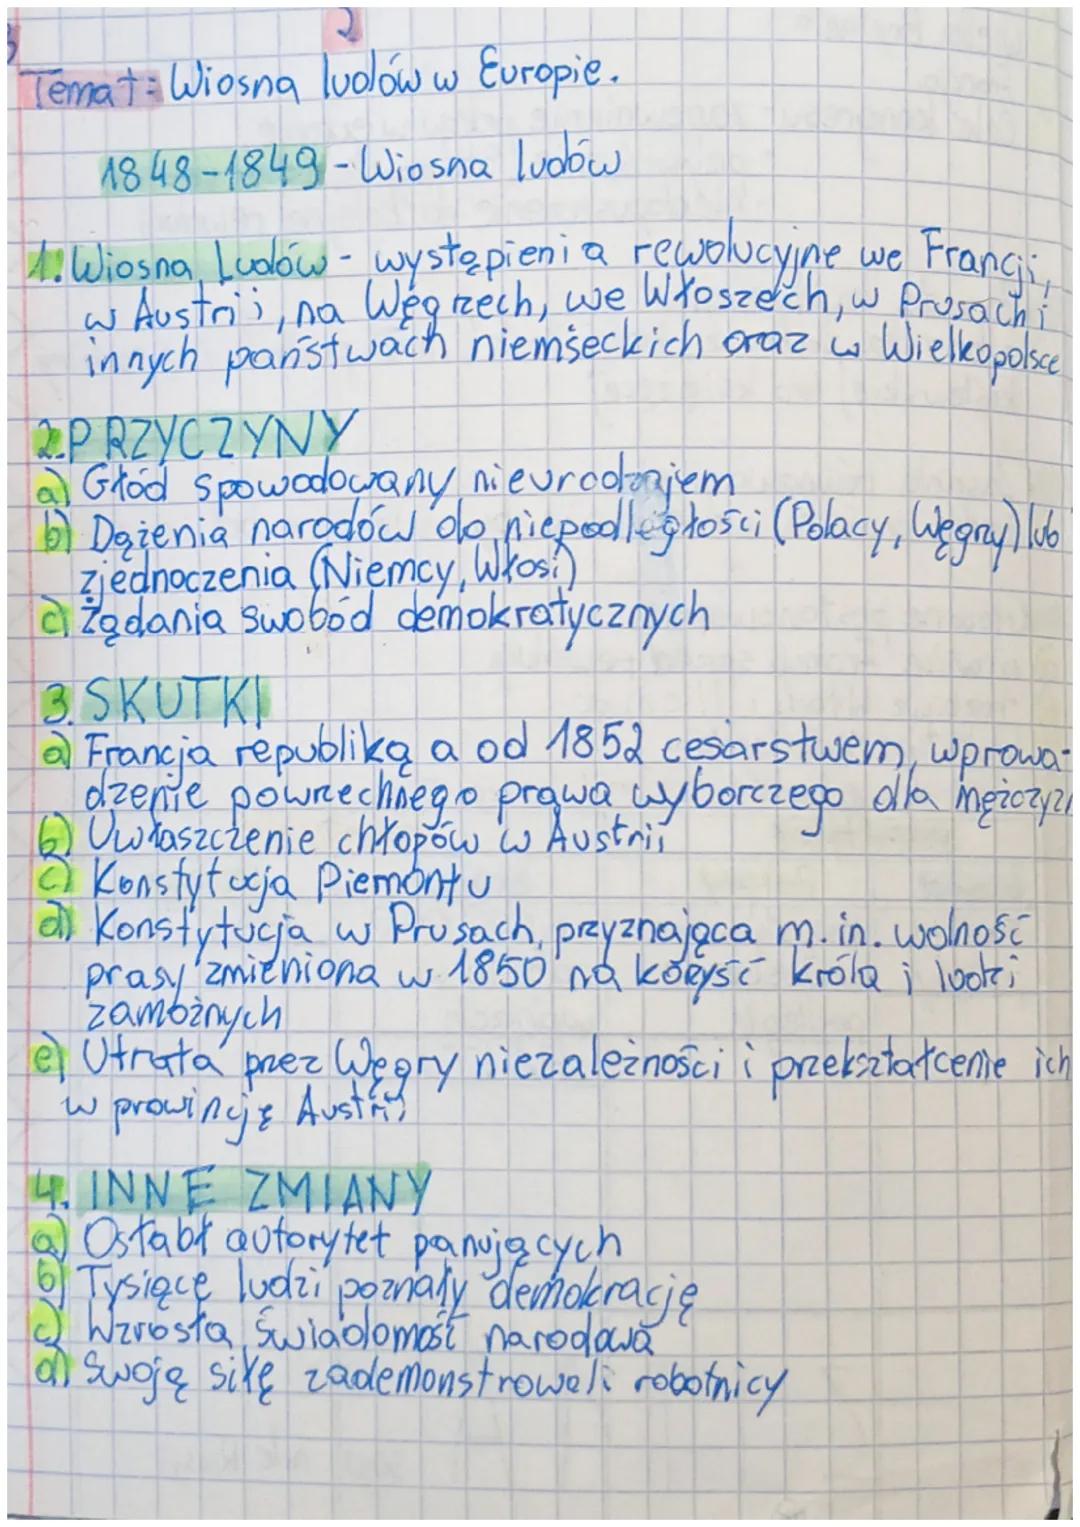 2
Temat: Wiosna ludów w Europie.
1848-1849 - Wiosna ludów
1. Wiosna Ludów - wystąpienia rewolucyjne we Francji,
w Austrii, na Węgrzech, we Włoszech, w Prusach i
innych państwach niemieckich oraz w Wielkopolsce
2. PRZYCZYNY
a) Głód spowodowany nieurodzajem
b) Dążenia narodów do niepodległości (Polacy, Węgry) lub
zjednoczenia (Niemcy, Włosi)
c) Żądania swobód demokratycznych
3. SKUTKI
a) Francja republiką a od 1852 cesarstwem, wprowa-
dzenie powrzechnego prawa wyborczego dla mężczyzn
b) Uwłaszczenie chłopów w Austrii
c) Konstytucja Piemontu
d) Konstytucja w Prusach, przyznająca m.in. wolność
prasy zmieniona w 1850 na korzyść króla i ludzi
zamożnych
e) Utrata przez Węgry niezależności i przekształcenie ich
w prowincję Austrii
4. INNE ZMIANY
a) Osłabł autorytet panujących
b) Tysiące ludzi poznały demokrację
c) Wzrosła świadomość narodowa
d) Swoją siłę zademonstrowali robotnicy